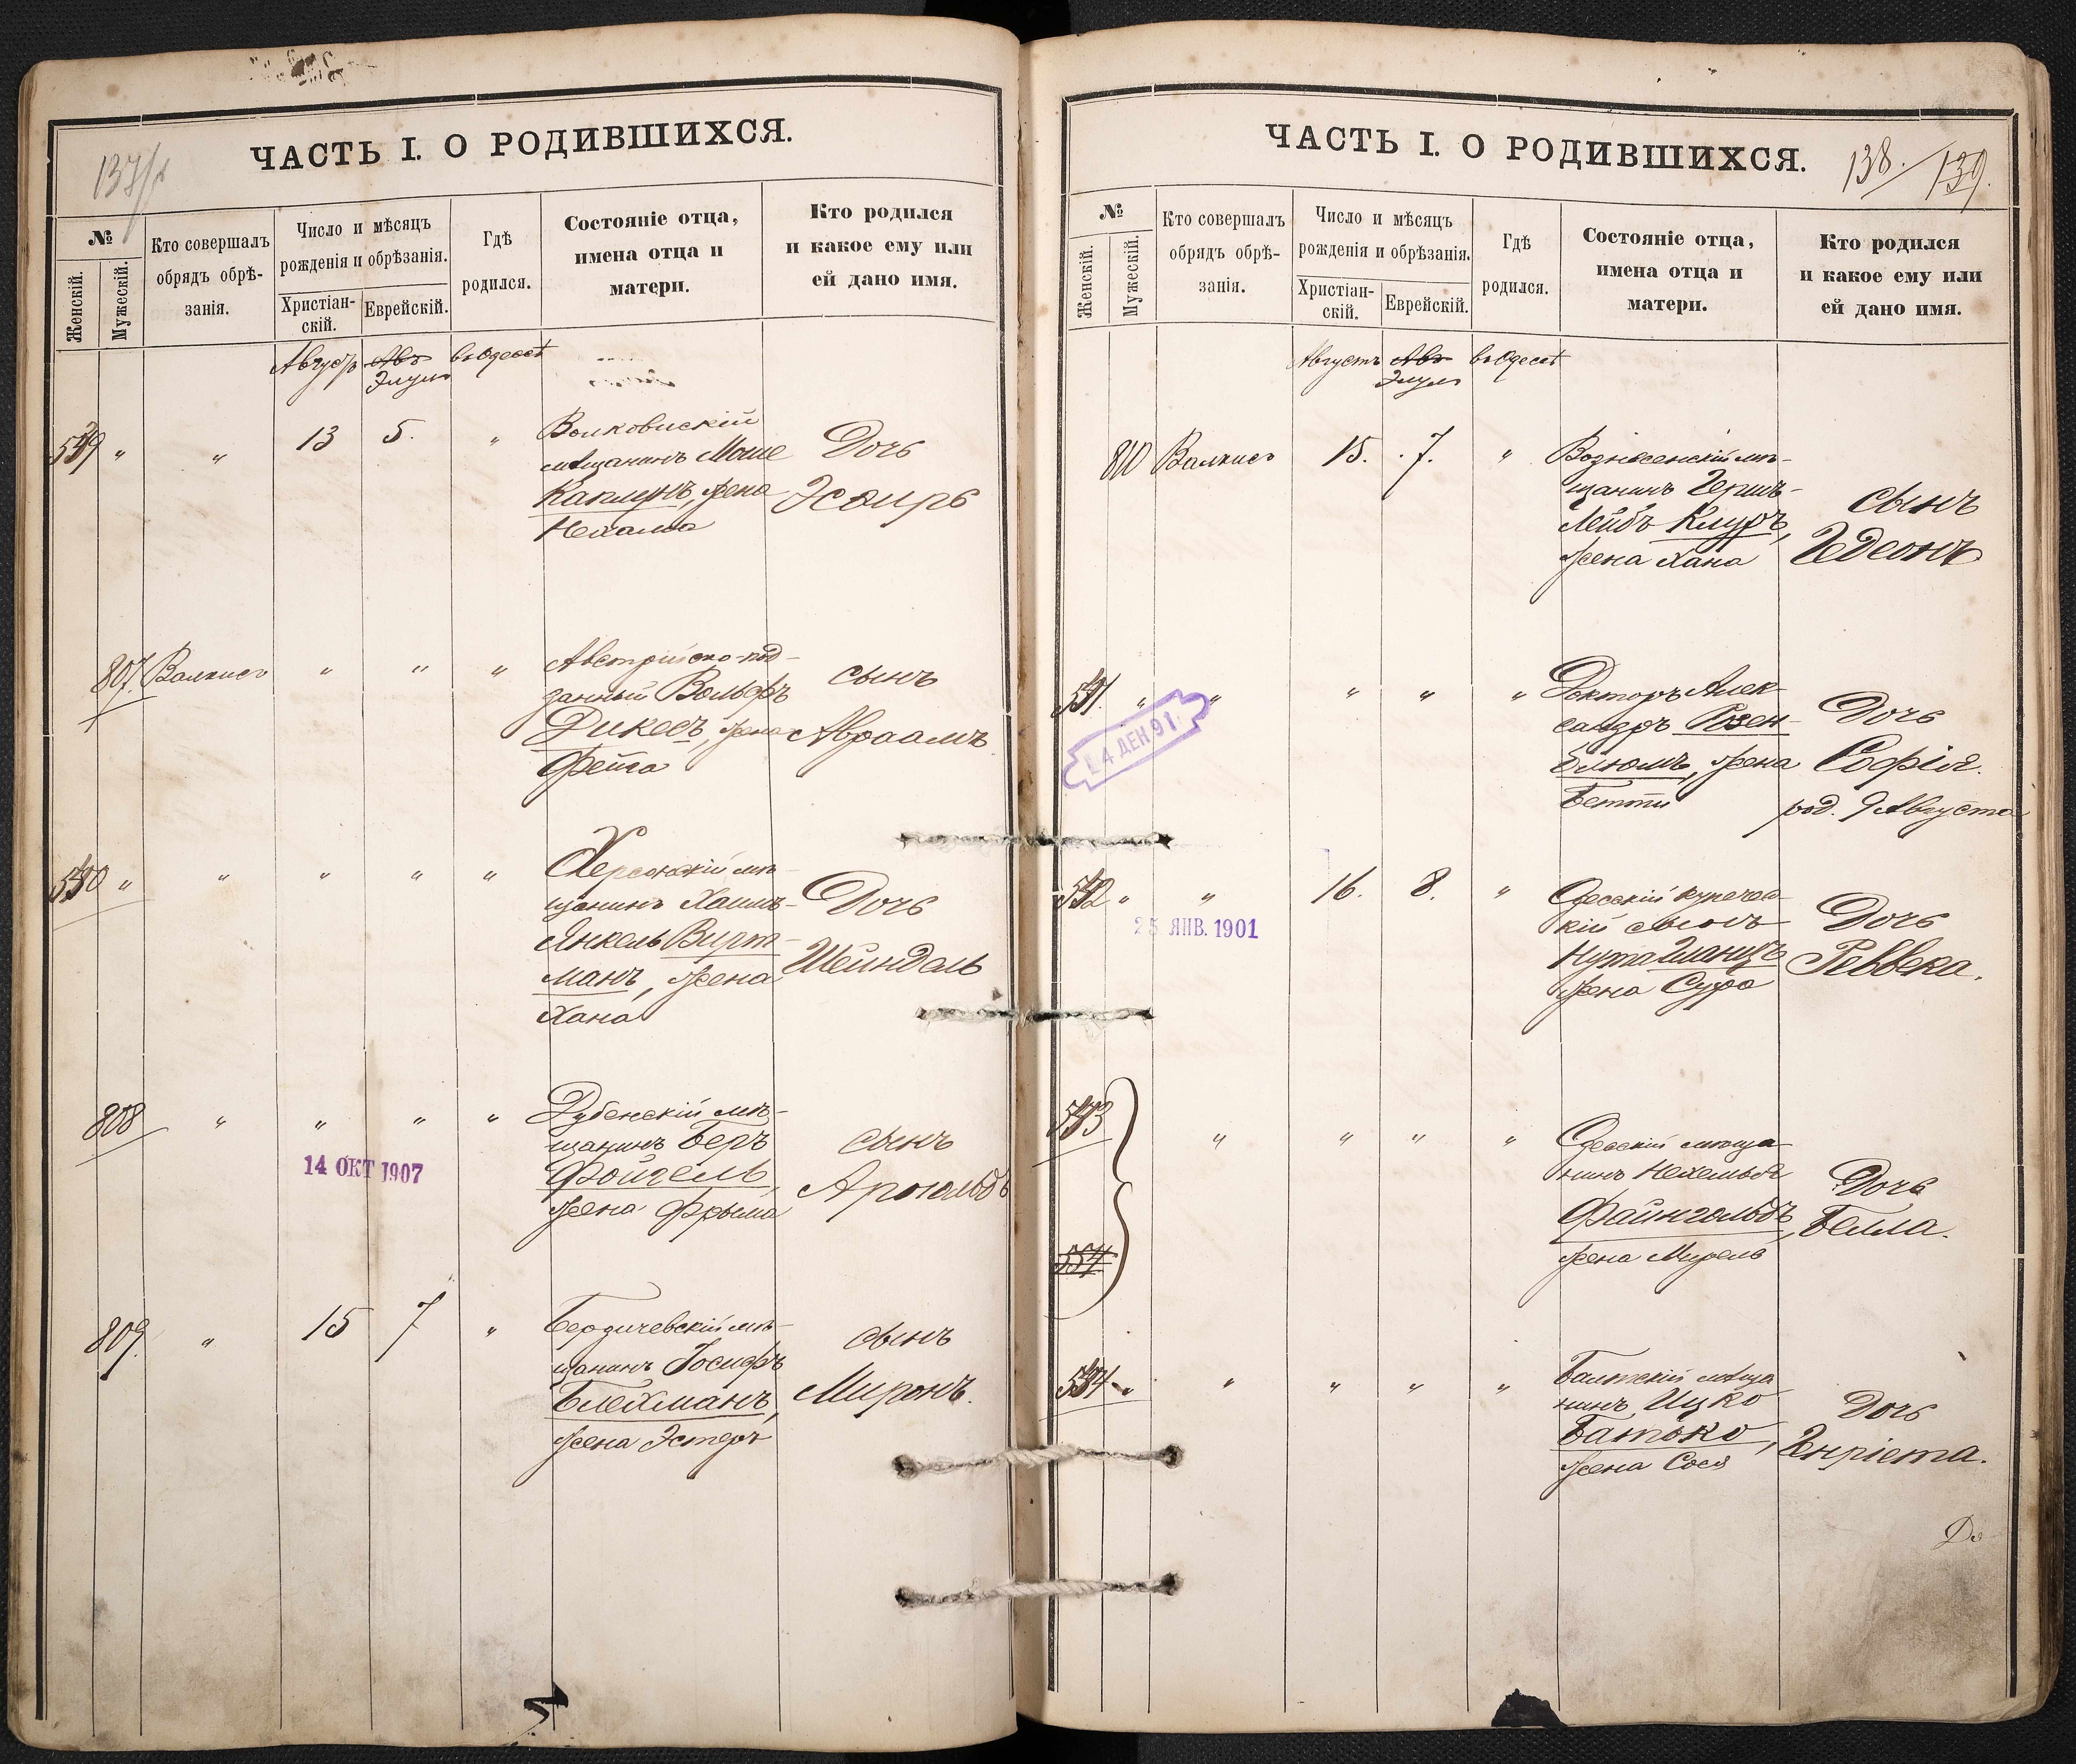 137/
ЧАСТЬ I. О РОДИВШИХСЯ.
№
Женскій.
Мужескій.
Кто совершалъ
обрядъ обрѣ-
занія.
Число и мѣсяцъ
рожденія и обрѣзанія.
Христіан-
скій.
Еврейскій.
Гдѣ
родился.
Состояніе отца,
имена отца и
матери.
Кто родился
и какое ему или
ей дано имя.
Августъ Авъ въ Одессѣ
Элулъ
539 " " 13 5. "
Волковискій
мѣщанинъ Моше
Капланъ, жена
Нехама
Дочь
Эсѳирь
807. Валкисъ " " "
Австрійско-под-
данный Вольфъ
Дикесъ, жена
Фейга
сынъ
Авраамъ
540 " " " " "
Херсонскій мѣ-
щанинъ Хаимъ-
Янкель Вирт-
манъ, жена
Хана
Дочь
Шейндель
808 " " " "
14 ОКТ 1907
Дубенскій мѣ-
щанинъ Беръ
Фойгель,
жена Фрыма
сынъ
Арнольдъ
809. " 15 7 "
Бердичевскій мѣ-
щанинъ Іосифъ
Блехманъ,
жена Эстеръ
сынъ
Миронъ.
ЧАСТЬ I. О РОДИВШИХСЯ.
138. / 139.
№
Женскій.
Мужескій.
Кто совершалъ
обрядъ обрѣ-
занія.
Число и мѣсяцъ
рожденія и обрѣзанія.
Христіан-
скій.
Еврейскій.
Гдѣ
родился.
Состояніе отца,
имена отца и
матери.
Кто родился
и какое ему или
ей дано имя.
Августъ Авъ въ Одессѣ
Элулъ
810 Валкисъ 15. 7. "
Вознесенскій мѣ-
щанинъ Герш-
Лейбъ
жена Хана
сынъ
Гедеонъ
541. " " " " "
4 ДЕК 91
Докторъ Алек-
сандръ Розен-
блюмъ, жена
Бетти
Дочь
Софія.
род. 9 Августа
542 " " 16. 8. "
25 ЯНВ. 1901
Одесскій купечес-
кій сынъ
Нута Шанцъ
жена Сура
Дочь
Реввека.
543 " " " "
554
Одесскій мѣща
нинъ Нехемья
Файнгольдъ,
жена Мирель
Дочь
Белла.
544 " " " " "
Балтскій мѣща
нинъ Ицко
Батько,
жена Сося
Дочь
Генріета.
До